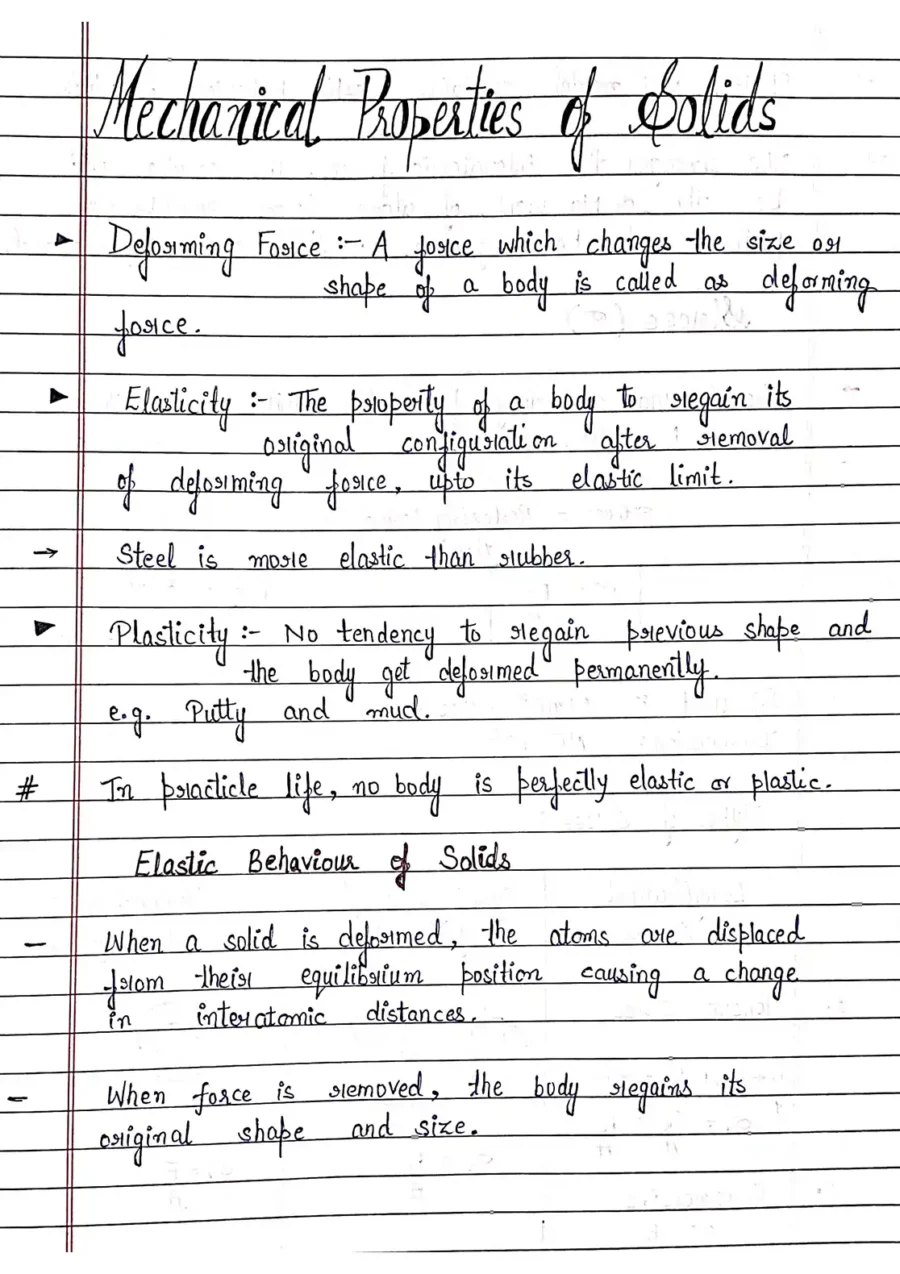 Mechanical Properties of Solids
► Deforming Force :- A force which changes the size or
shape of a body is called as deforming
force.
► Elasticity :- The property of a body to regain its
original configuration after removal
of deforming force, upto its elastic limit.
→ Steel is more elastic than rubber.
► Plasticity :- No tendency to regain previous shape and
the body get deformed permanently.
e.g. Putty and mud.
# In practicle life, no body is perfectly elastic or plastic.
Elastic Behaviour of Solids
- When a solid is deformed, the atoms are displaced
from their equilibrium position causing a change
in interatomic distances.
- When force is removed, the body regains its
original shape and size.